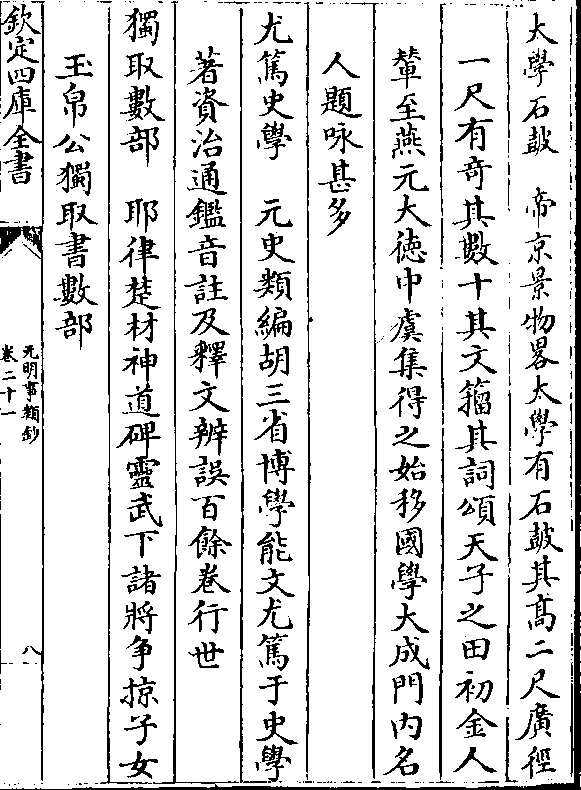 太學石鼓　帝京景物畧太學有石鼓其髙二尺廣徑
一尺有竒其數十其文籀其詞頌天子之田初金人
輦至燕元大徳中虞集得之始移國學大成門内名
人題咏甚多
尤篤史學　元史類編胡三省博學能文尤篤于史學
著資治通鑑音註及釋文辨誤百餘卷行世
獨取數部　耶律楚材神道碑靈武下諸將争掠子女
玉帛公獨取書數部
欽定四庫全書
元明事類鈔
卷二十一
八